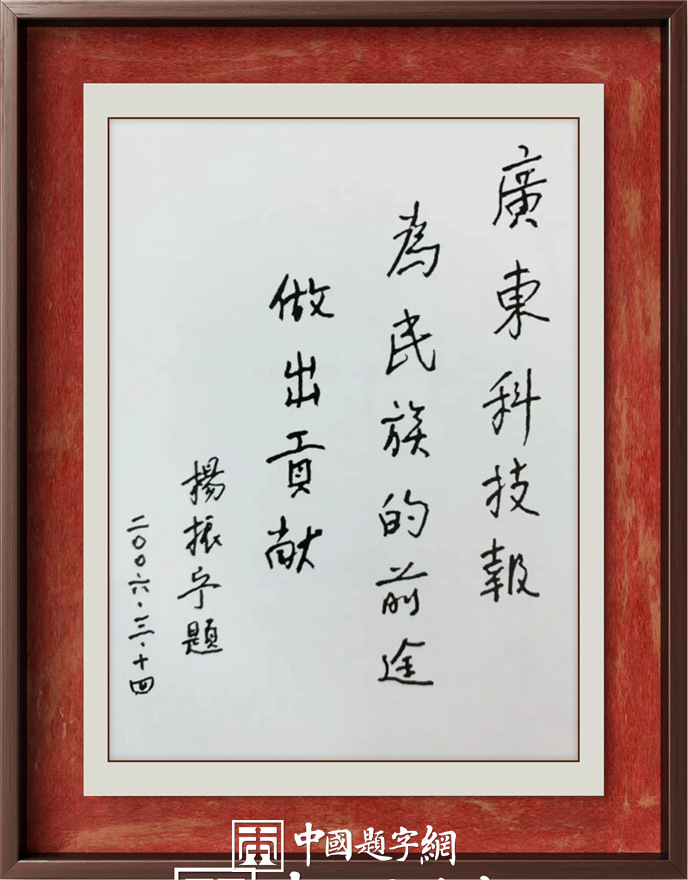 廣東科技報
為民族的前途
做出貢献
楊振宁題
二〇〇六·三·十四
中國題字網